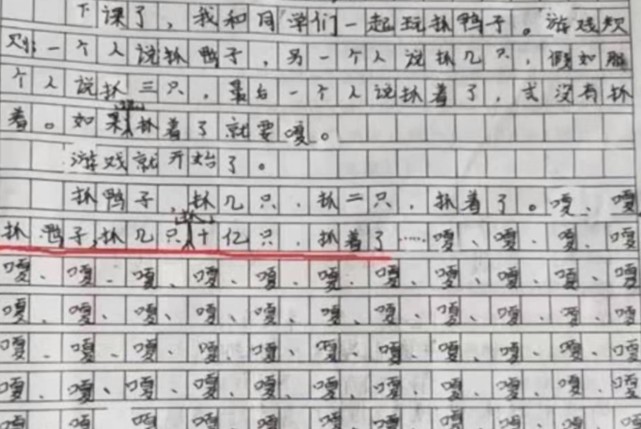 下课了，我和同学们一起玩抓鸭子。游戏规
则：一个人说抓鸭子，另一个人说抓几只，假如那
个人说抓三只，最后一个人说抓着了，或没有抓
着。如果抓着了就要嘎。
游戏就开始了。
抓鸭子，抓几只，抓二只，抓着了。嘎、嘎
抓鸭子，抓几只，抓十亿只，抓着了……嘎、嘎、嘎、嘎
嘎、嘎、嘎、嘎、嘎、嘎、嘎、嘎、嘎、嘎
嘎、嘎、嘎、嘎、嘎、嘎、嘎、嘎、嘎、嘎
嘎、嘎、嘎、嘎、嘎、嘎、嘎、嘎、嘎、嘎
嘎、嘎、嘎、嘎、嘎、嘎、嘎、嘎、嘎、嘎
嘎、嘎、嘎、嘎、嘎、嘎、嘎、嘎、嘎、嘎